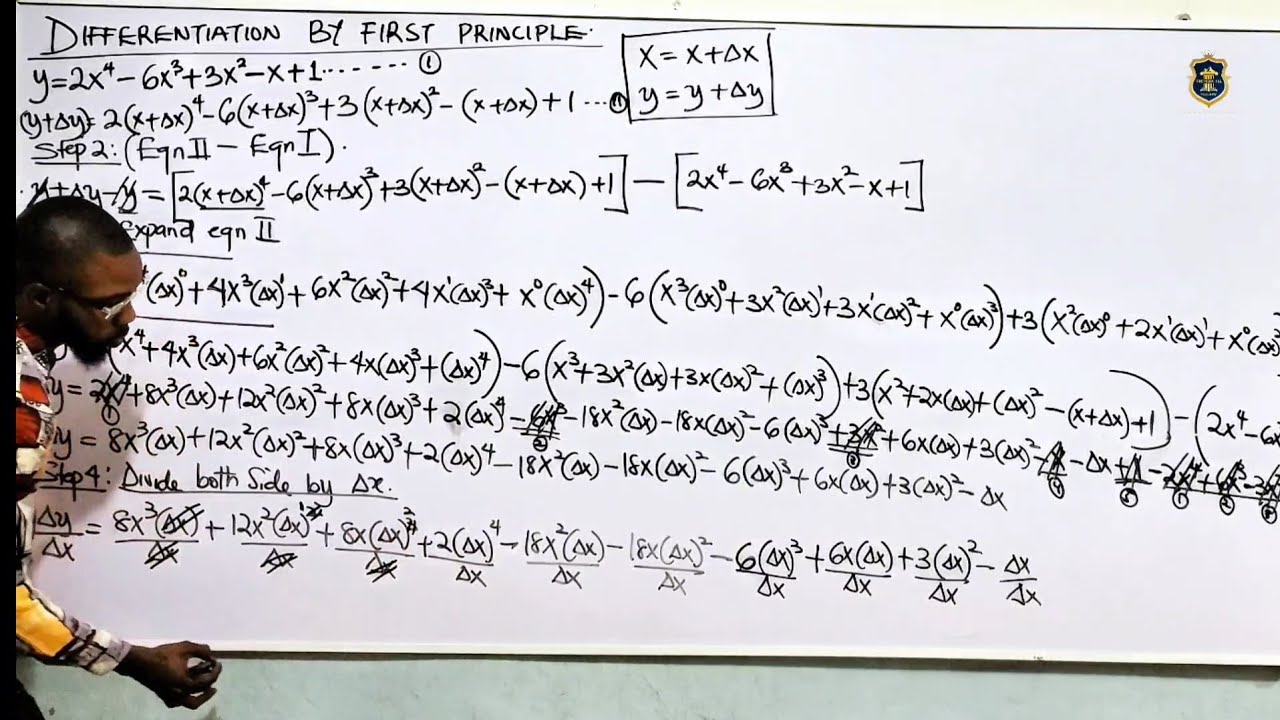 DIFFERENTIATION BY FIRST PRINCIPLE.
y=2x⁴-6x³+3x²-x+1....... ①
x = x+Δx
y = y+Δy
(y+Δy)= 2(x+Δx)⁴-6(x+Δx)³+3(x+Δx)²-(x+Δx)+1 ...⑪
Step 2: (Eqn II - Eqn I).
y+Δy-y = [2(x+Δx)⁴-6(x+Δx)³+3(x+Δx)²-(x+Δx)+1] - [2x⁴-6x³+3x²-x+1]
Expand eqn II
(Δx)⁰+4x³(Δx)¹+6x²(Δx)²+4x¹(Δx)³+x⁰(Δx)⁴)-6(x³(Δx)⁰+3x²(Δx)¹+3x¹(Δx)²+x⁰(Δx)³)+3(x²(Δx)⁰+2x¹(Δx)¹+x⁰(Δx)²
(x⁴+4x³(Δx)+6x²(Δx)²+4x(Δx)³+(Δx)⁴)-6(x³+3x²(Δx)+3x(Δx)²+(Δx)³)+3(x²+2x(Δx)+(Δx)²-(x+Δx)+1)-(2x⁴-6x
y = 2x⁴+8x³(Δx)+12x²(Δx)²+8x(Δx)³+2(Δx)⁴-6x³-18x²(Δx)-18x(Δx)²-6(Δx)³+3x²+6x(Δx)+3(Δx)²-x-Δx+1-2x⁴+6x³-3x²
y = 8x³(Δx)+12x²(Δx)²+8x(Δx)³+2(Δx)⁴-18x²(Δx)-18x(Δx)²-6(Δx)³+6x(Δx)+3(Δx)²-Δx
Step 4: Divide both Side by Δx.
Δy/Δx = 8x³(Δx)/Δx + 12x²(Δx)²/Δx + 8x(Δx)³/Δx + 2(Δx)⁴/Δx - 18x²(Δx)/Δx - 18x(Δx)²/Δx - 6(Δx)³/Δx + 6x(Δx)/Δx + 3(Δx)²/Δx - Δx/Δx